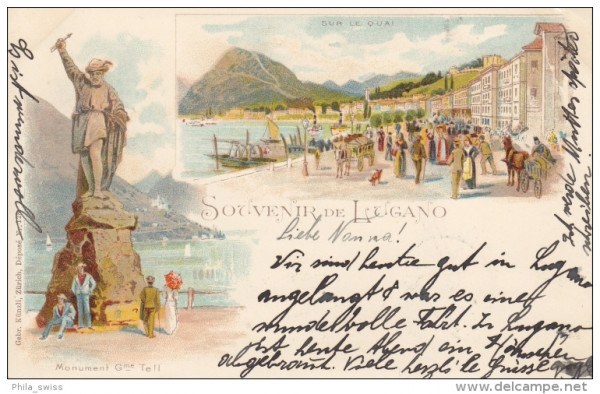 SUR LE QUAI
SOUVENIR DE LUGANO
Liebe Nanna!
Wir sind heute gut in Lugano
angelangt & war es eine
wundervolle Fahrt. In Lugano
ist heute Abend ein
abgebrannt. Viele herzl. Grüsse
Ich werde Martha später
schreiben.
Monument Gme Tell
Gebr. Künzli, Zürich, Déposé
Phila_swiss
delcampe.net